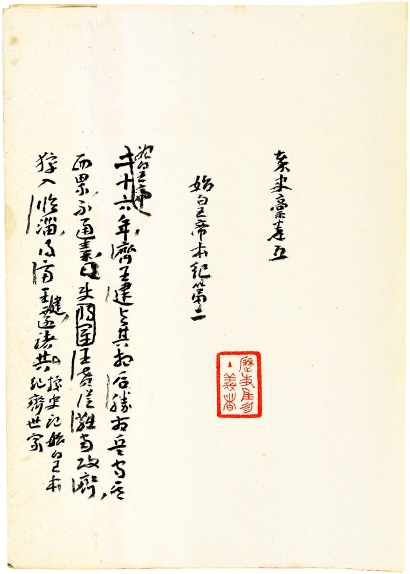 秦史藁卷五
始皇帝本紀第二
始皇帝
二十六年,齊王建與其相后勝發兵守其
西界,不通秦,使將軍王賁從燕南攻齊,
猝入臨淄,得齊王建,遷諸共。據史記始皇本
紀齊世家